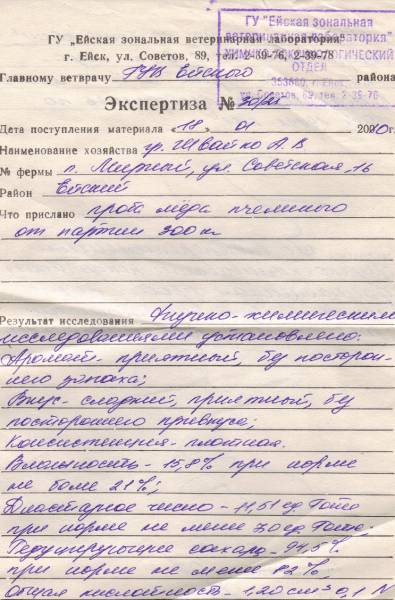 ГУ "Ейская зональная
ветеринарная лаборатория"
ХИМИКО-ТОКСИКОЛОГИЧЕСКИЙ
ОТДЕЛ
353680, г. Ейск,
ул. Советов, 89, тел. 2-39-76
ГУ „Ейская зональная ветеринарная лаборатория"
г. Ейск, ул. Советов, 89, тел. 2-39-76, 2-39-78
Главному ветврачу Ейского района
Экспертиза №
Дата поступления материала „18" 01 2010г.
Наименование хозяйства гр. Швайко А.В
№ фермы п. Мирный, ул. Советская, 16
Район Ейский
Что прислано проба мёда пчелиного
от партии 300 кг
Результат исследования Физико-химическими
исследованиями установлено:
Аромат - приятный, без посторон-
него запаха;
Вкус - сладкий, приятный, без
постороннего привкуса;
Консистенция - плотная.
Влажность - 15,8% при норме
не более 21%;
Диастазное число - 11,51 ед. Готе
при норме не менее 7,0 ед. Готе;
Редуцирующие сахара - 94,5%
при норме не менее 82%,
Общая кислотность - 1,20 см³ 0,1 N